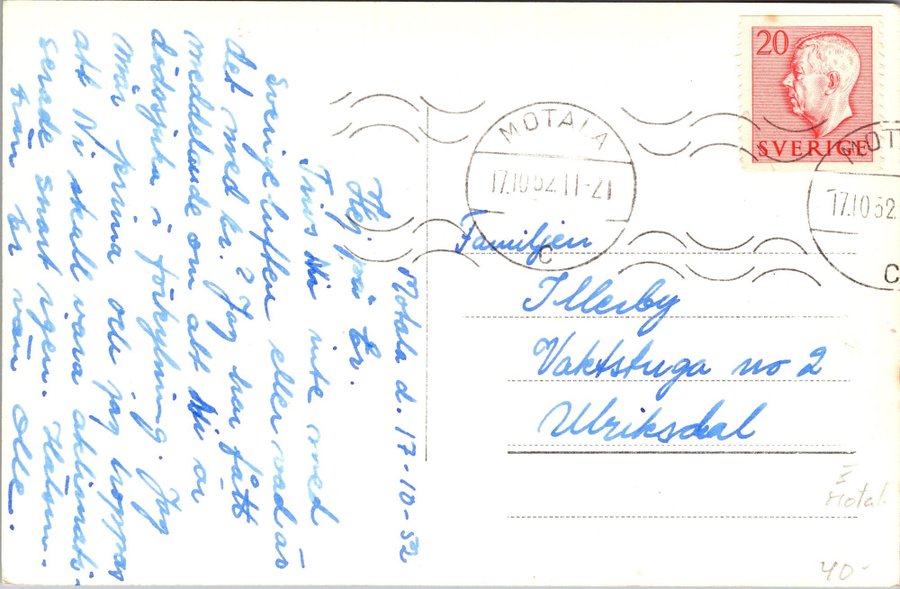 Motala d. 17-10-52
Hej på Er.
Trivs Ni inte med
Sverigeluften eller vad är
det med Er? Jag har fått
meddelande om att Ni är
dödssjuka i förkylning. Jag
mår prima och jag hoppas
att Ni skall vara aklimati-
serade snart igen. Hälsn.
från Er vän Olle.
20
SVERIGE
MOTALA
17.10.52.11-21
C
MOT
17.10.52.
C
Familjen
Illerby
Vaktstuga no 2
Ulriksdal
Motal
40-